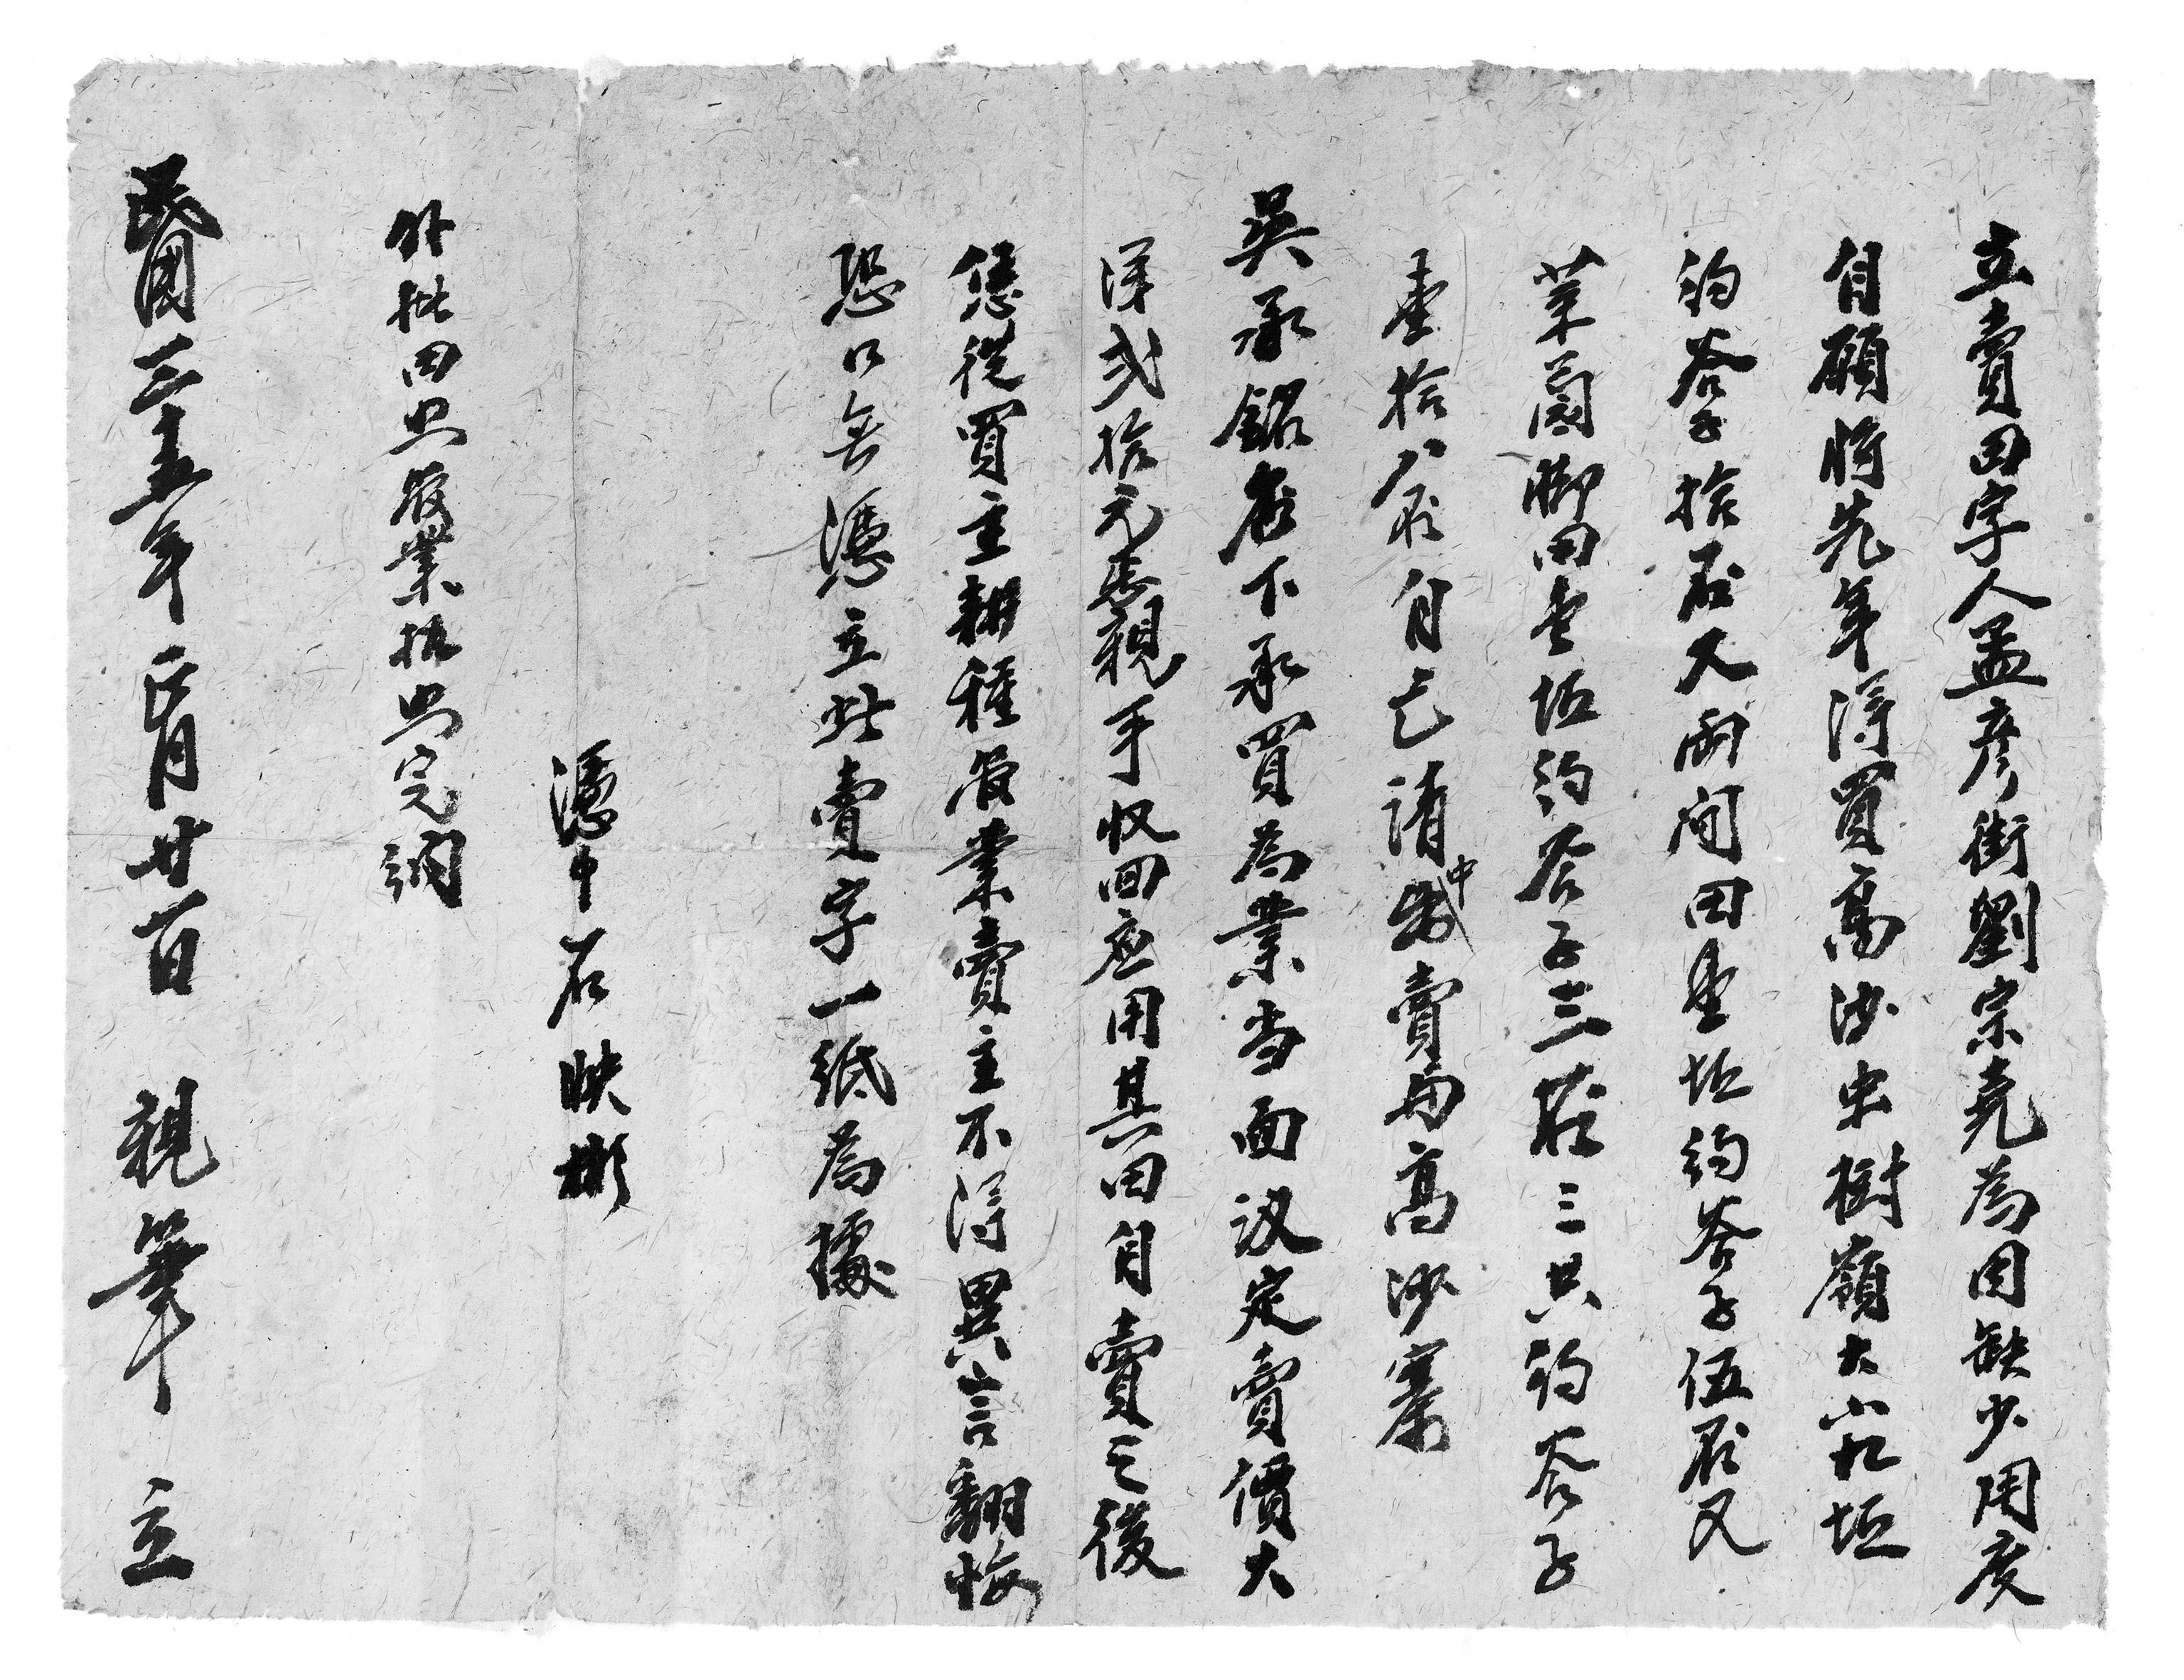 立賣田字人孟彥街劉宗堯為因缺少用度
自願將先年得買高沙虫樹嶺大小九坵
約谷子拾石又兩間田壹坵約谷子伍石又
菜園脚田壹坵約谷子三石三共約谷子
壹拾八石自己請中出賣与高沙寨
吳承銘名下承買為業当面议定賣價大
洋弍拾元恁親手收回应用其田自賣之後
恁從買主耕種管業賣主不得異言翻悔
恐口無憑立此賣字一纸為據
憑中石映彬
外批田照管業执照完納
民國三十五年二月廿一日 親筆 立